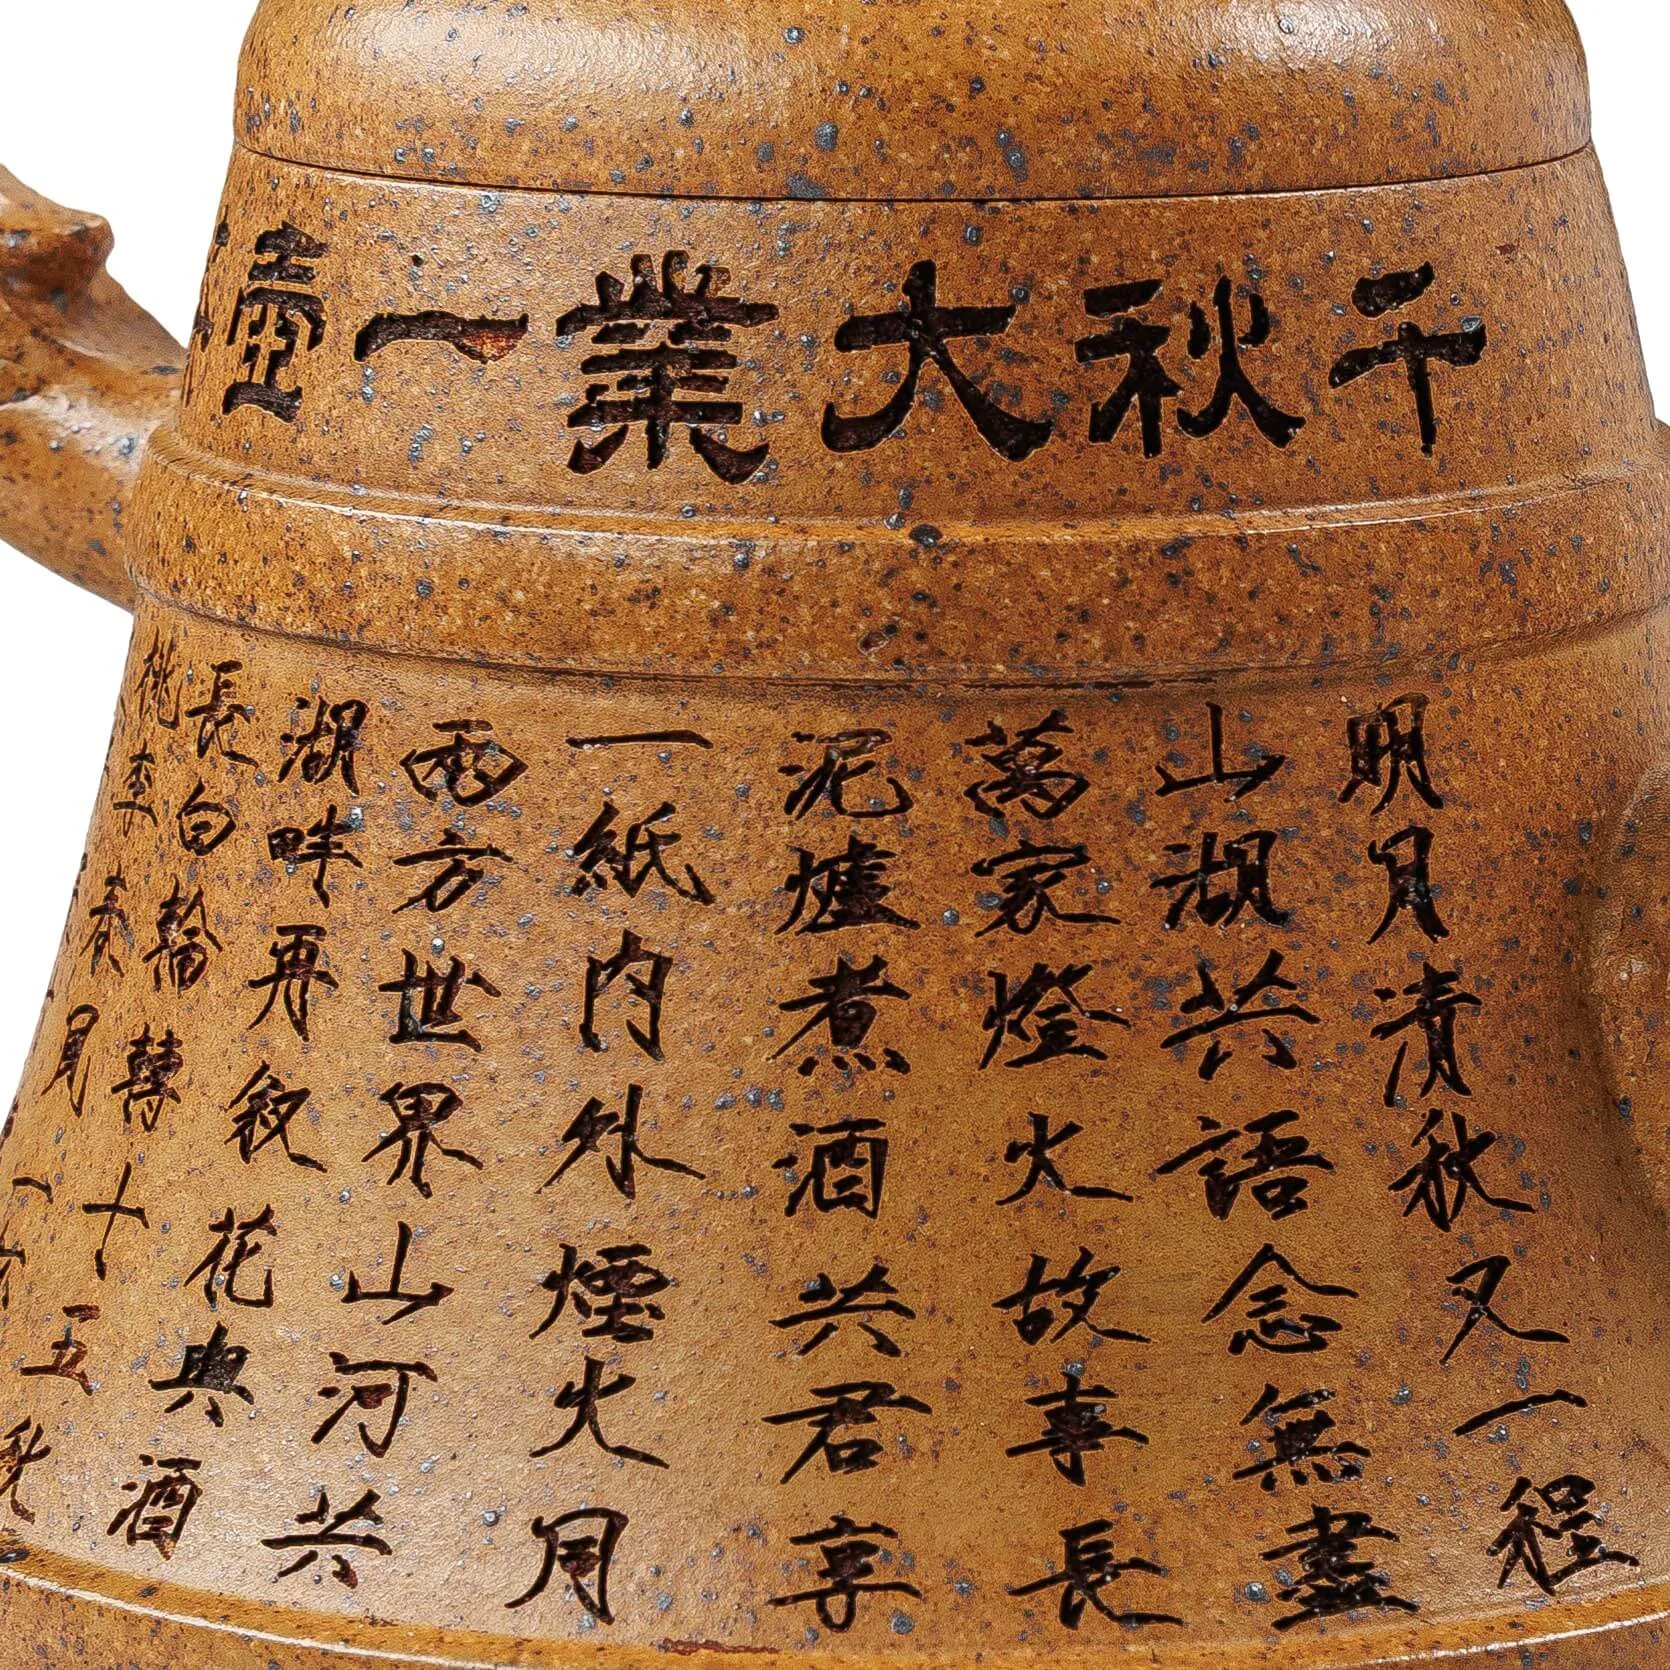 千秋大業一壺
明月清秋又一程
山湖共語念無盡
萬家燈火故事長
泥爐煮酒共君享
一紙內外煙火月
兩方世界山河共
湖畔再敘花典酒
長白輪轉十五秋
桃李春月一